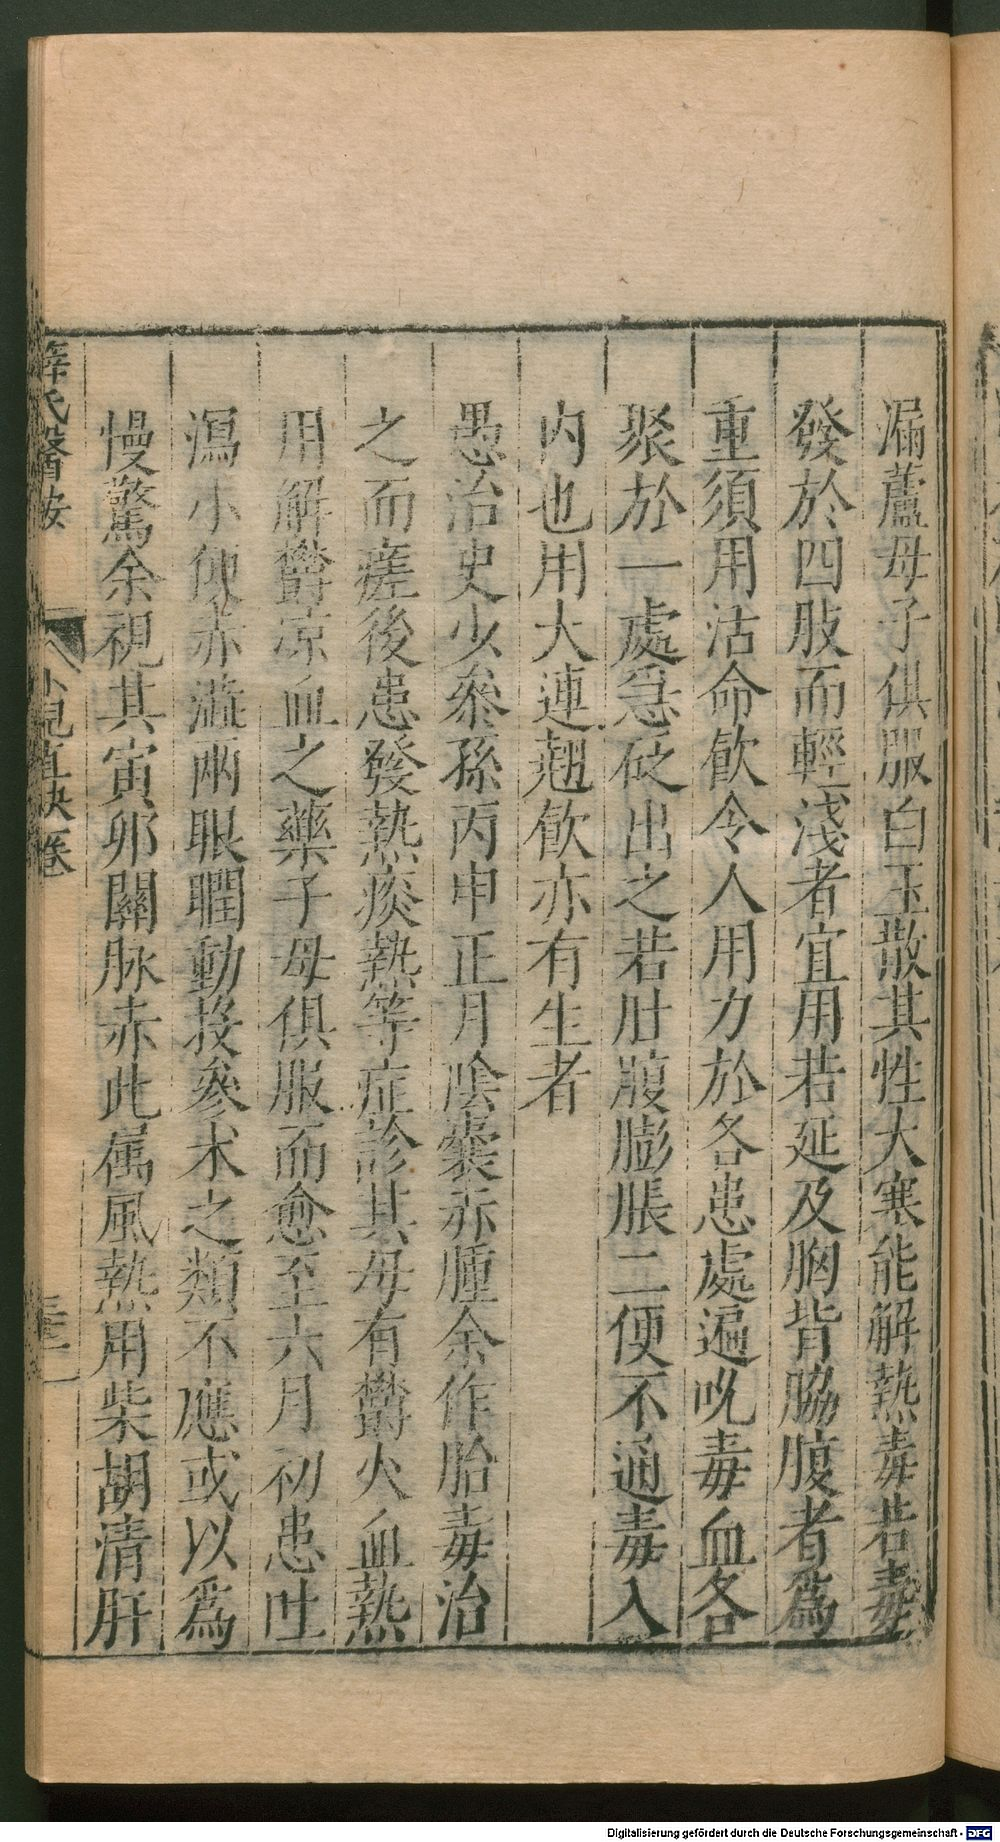 漏蘆母子俱服白玉散其性大寒能解熱毒若毒
發於四肢而輕淺者宜用若延及胸背脇腹者為
重須用活命飲令人用力於各患處遍吮毒血各
聚於一處急砭出之若肚腹膨脹二便不通毒入
内也用大連翹飲亦有生者
愚治史少叅孫丙申正月陰囊赤腫余作胎毒治
之而瘥後患發熱痰熱等症診其母有欝火血熱
用解欝凉血之藥子母俱服而愈至六月初患吐
瀉小便赤澁兩眼瞤動投參术之類不應或以為
慢驚余視其寅卯關脉赤此属風熱用柴胡清肝
薛氏醫按
小兒直訣卷
Digitalisierung gefördert durch die Deutsche Forschungsgemeinschaft - DFG